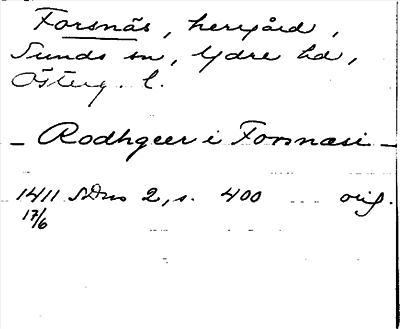 Forsnäs, herrgård,
Sunds sn, Ydre hd,
Österg. l.
_ Rodhgeer i Forsnæsi _
1411 SDns 2, s. 400 orig.
17/6